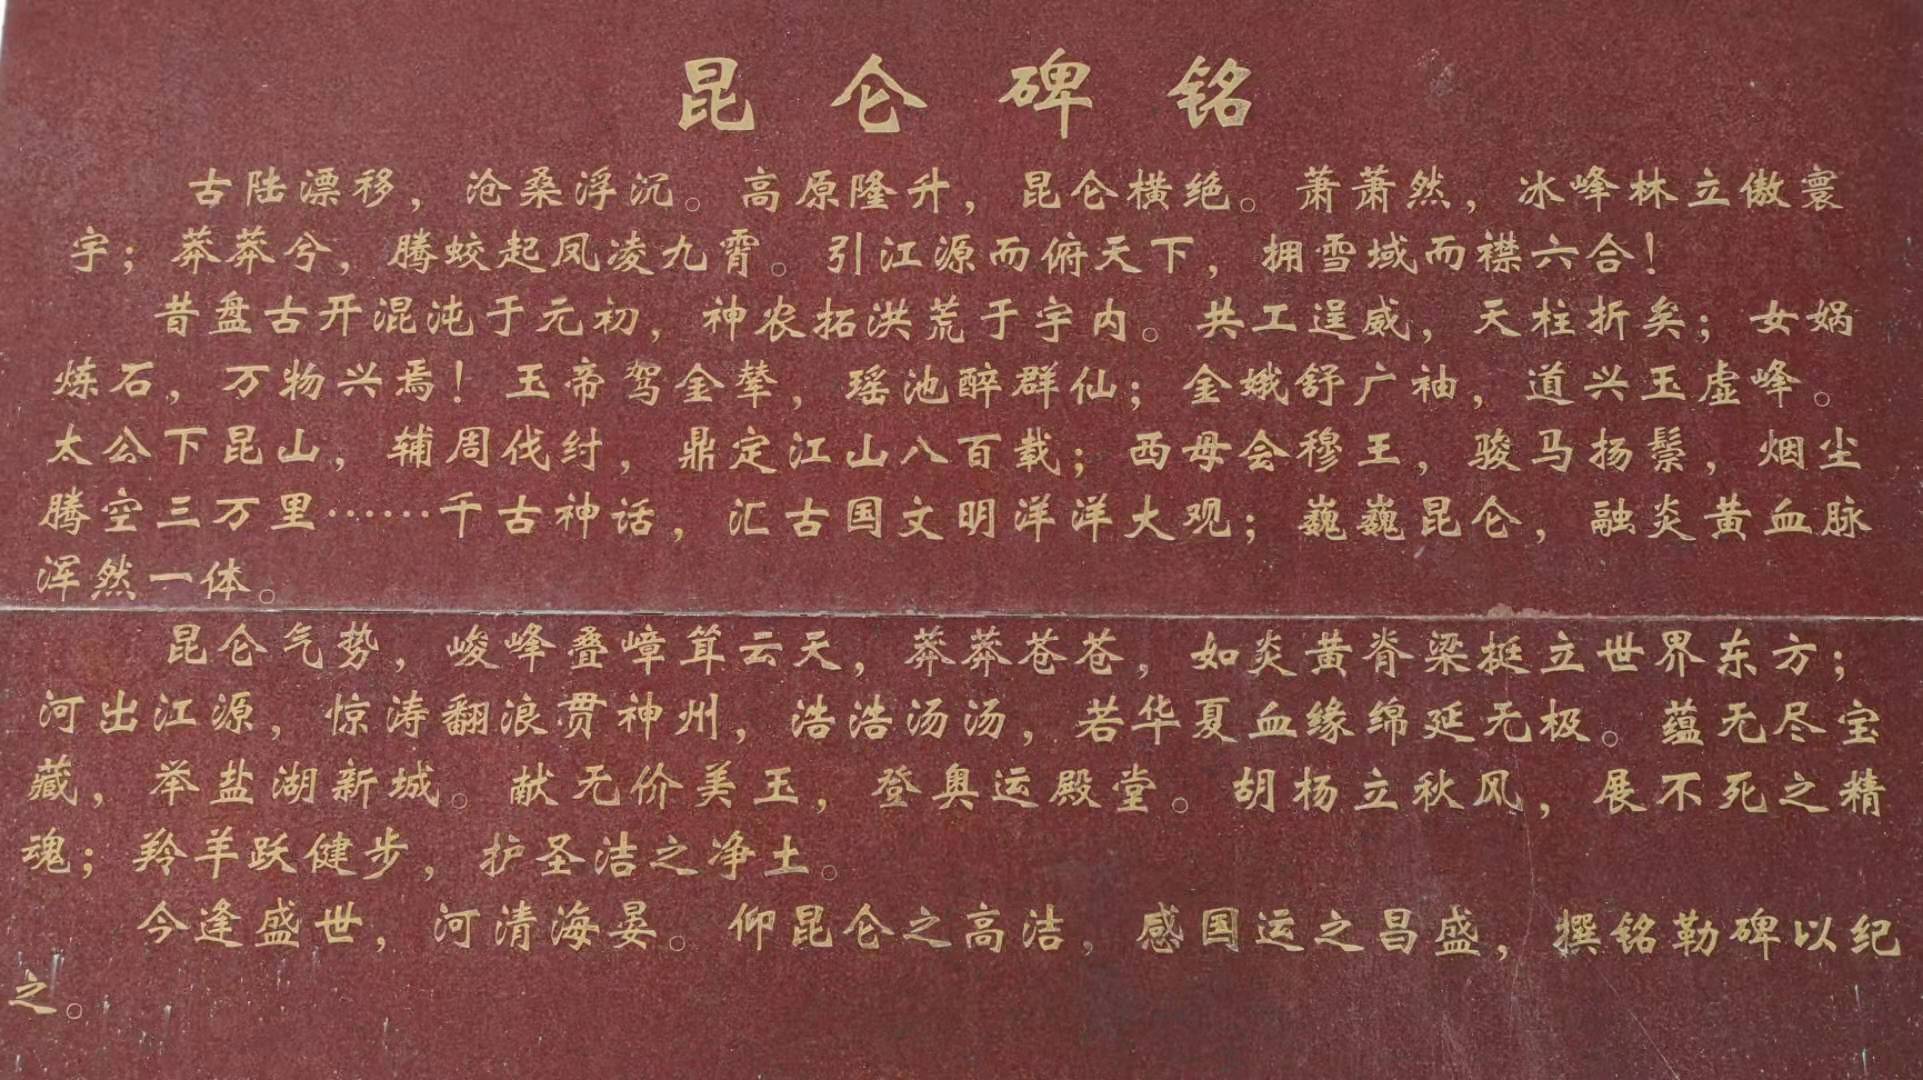 昆仑碑铭
古陆漂移，沧桑浮沉。高原隆升，昆仑横绝。萧萧然，冰峰林立傲寰
宇；莽莽兮，腾蛟起凤凌九霄。引江源而俯天下，拥雪域而襟六合！
昔盘古开混沌于元初，神农拓洪荒于宇内。共工逞威，天柱折矣；女娲
炼石，万物兴焉！玉帝驾金辇，瑶池醉群仙；金娥舒广袖，道兴玉虚峰。
太公下昆山，辅周伐纣，鼎定江山八百载；西母会穆王，骏马扬鬃，烟尘
腾空三万里……千古神话，汇古国文明洋洋大观；巍巍昆仑，融炎黄血脉
浑然一体。
昆仑气势，峻峰叠嶂耸云天，莽莽苍苍，如炎黄脊梁挺立世界东方；
河出江源，惊涛翻浪贯神州，浩浩汤汤，若华夏血缘绵延无极。蕴无尽宝
藏，举盐湖新城。献无价美玉，登奥运殿堂。胡杨立秋风，展不死之精
魂；羚羊跃健步，护圣洁之净土。
今逢盛世，河清海晏。仰昆仑之高洁，感国运之昌盛，撰铭勒碑以纪
之。